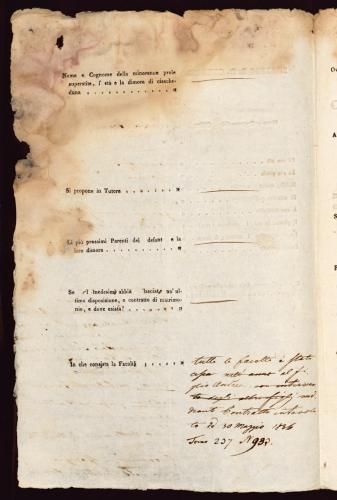 Nome e Cognome della minorenne prole
superstite, l' età e la dimora di ciasche-
duna
Si propone in Tutore
Li più prossimi Parenti del defunto e la
loro dimora
Se il medesimo abbia lasciato un'ul-
tima disposizione, o contratto di matrimo-
nio, e dove esista?
In che consista la Facoltà
tutta la facoltà è stata
al fi-
glio Andrea
degli altri figli me-
diante Contratto intavola-
to dd 30 Maggio 1836
237 N 983.